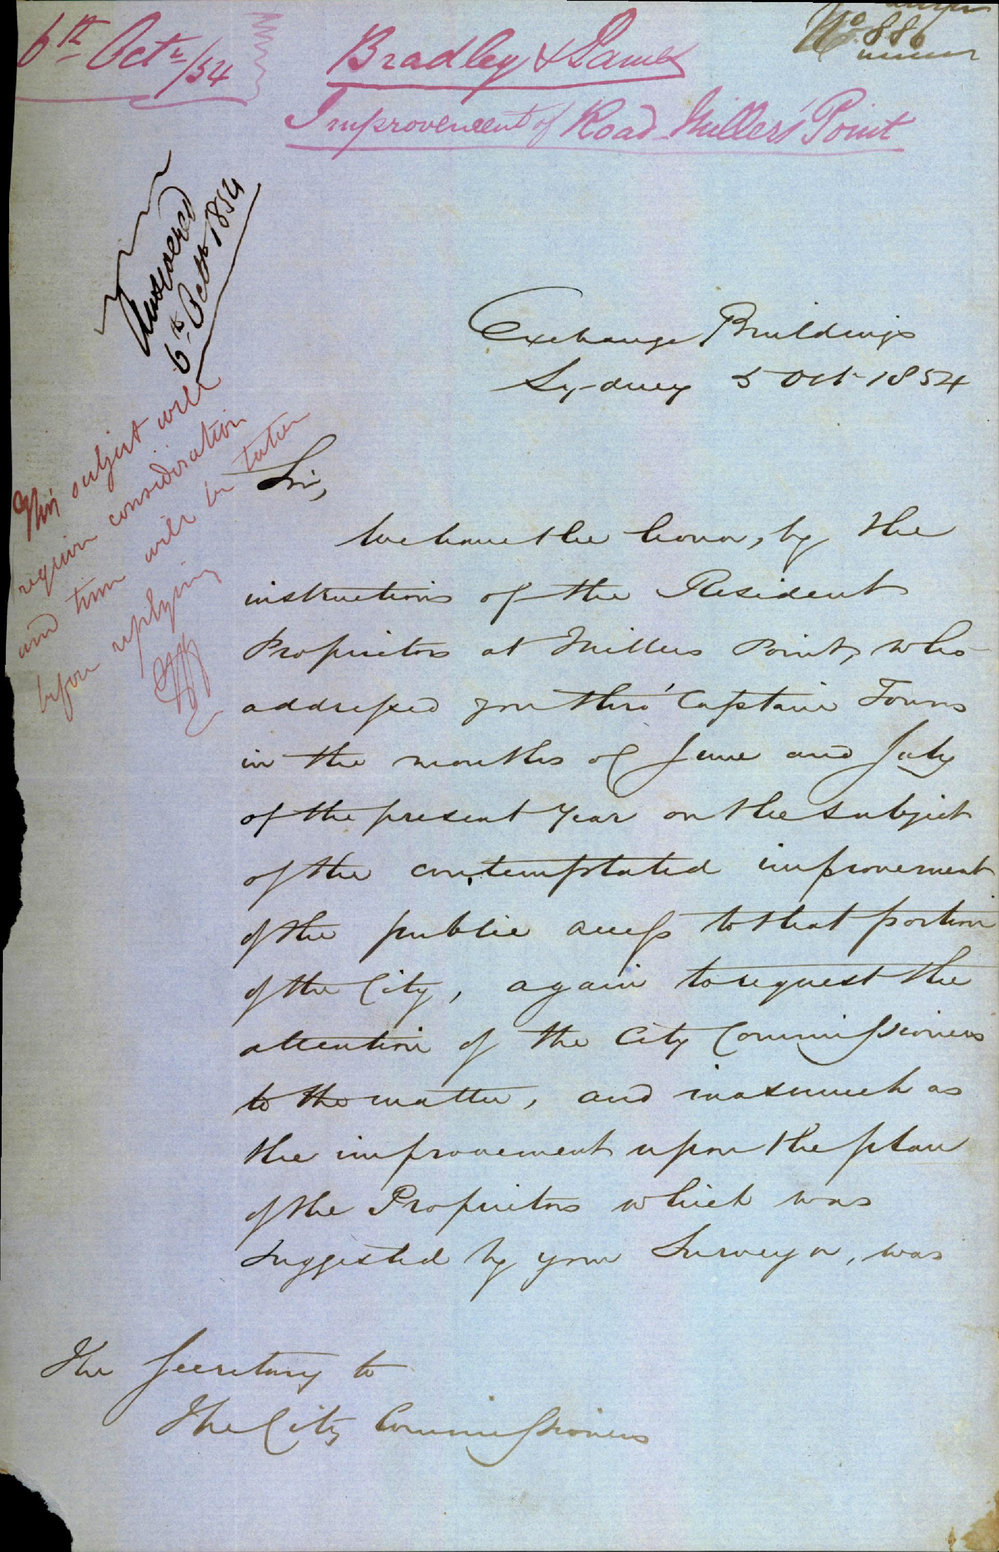 6th Octr/54
Bradley & James
No. 886
Improvement of Road Millers' Point
Answered
6th Octr 1854
This subject will
require consideration
and time will be taken
before replying
Exchange Buildings
Sydney 5 Oct 1854
Sir,
We have the honor, by the
instructions of the Resident
Proprietors at Millers Point, who
addressed you thro' Captain Towns
in the months of June and July
of the present year on the subject
of the contemplated improvement
of the public access to that portion
of the City, again to request the
attention of the City Commissioners
to the matter, and inasmuch as
the improvement upon the plan
of the Proprietors which was
suggested by your Surveyor, was
The Secretary to
The City Commissioners